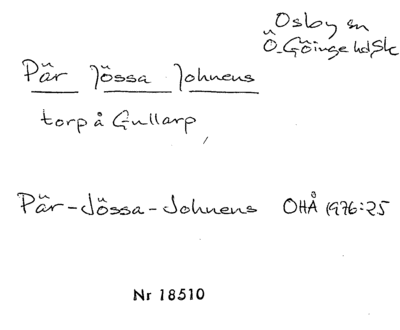 Osby sn
Ö. Göinge hd, Sk
Pär Jössa Johnens
torp å Gullarp,
Pär-Jössa-Johnens OHÅ 1976:25
Nr 18510